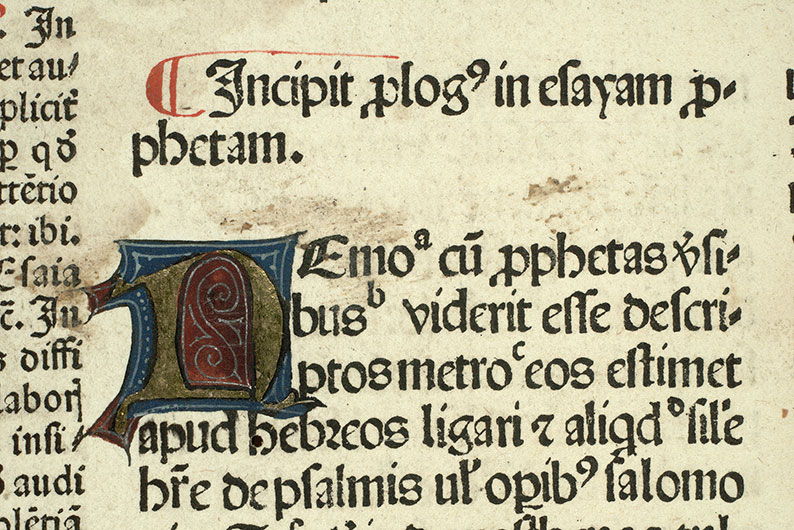 In
et au⸗
plicit̄
ꝑ qō
ttētio
r: ibi.
Esaia
c̄. In
s diffi
labor
insi⸗
audi
olētiā
Incipit ꝓlogꝰ in esayam ꝓ⸗
phetam.
NEmoᵃ cū ꝓphetas v̓si⸗
busᵇ viderit esse descri⸗
ptos metroᶜ eos estimet
apud hebreos ligari ⁊ aliqdᵈ sil'e
hr̄e de psalmis ul' oꝑibꝰ salomo